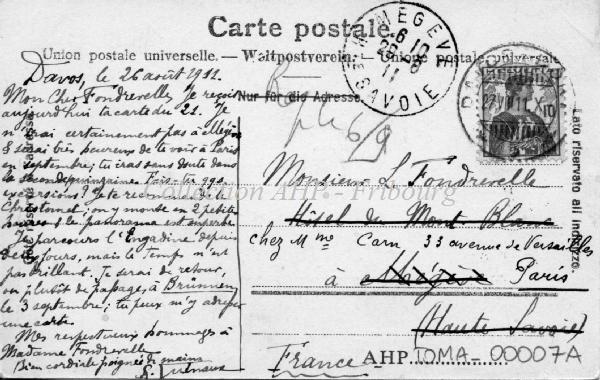 Carte postale.
Union postale universelle. — Weltpostverein. — Unione postale universale.
Nur für die Adresse.
Lato riservato all' indirizzo.
MEGEVE
28-8
11
SAVOIE
Davos, le 26 août 1911.
Mon Cher Fondrevelle, Je reçois
aujourd'hui ta carte du 21. Je
n'irai certainement pas à
& serai très heureux de te voir à Paris
en septembre; tu iras sans doute dans
la seconde quinzaine. Fais-tu qqs
excursions? Je te recommande le
; on y monte en 2 petites
heures & le panorama est superbe.
Je parcours l'Engadine depuis
jours, mais le temps n'est
pas brillant. Je serai de retour,
ou plutôt de passage, à Brunnen
le 3 septembre; tu peux m'y adresser
une carte.
Mes respectueux hommages à
Madame Fondrevelle
Bien cordiale poignée de mains
Monsieur L. Fondrevelle
Hôtel du Mont Blanc
chez Mme Carn, 33 avenue de Versailles
à Mégève Paris
(Haute Savoie)
France
Collection AHP - Fribourg
AHP TOMA-00007A